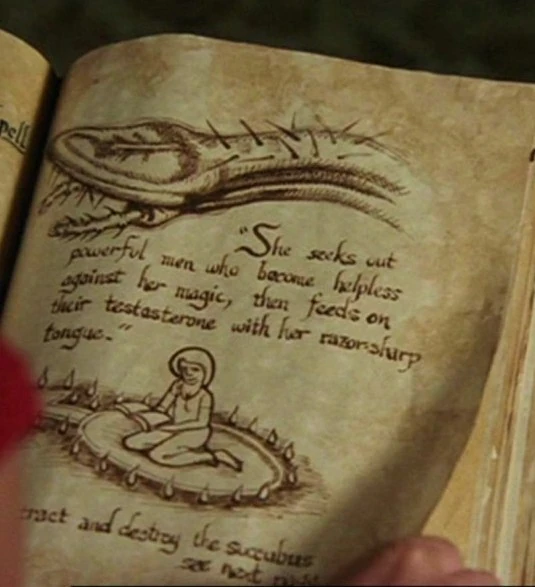 pell
"She seeks out
powerful men who become helpless
against her magic, then feeds on
their testosterone with her razorsharp
tongue."
and destroy the succubus
see next